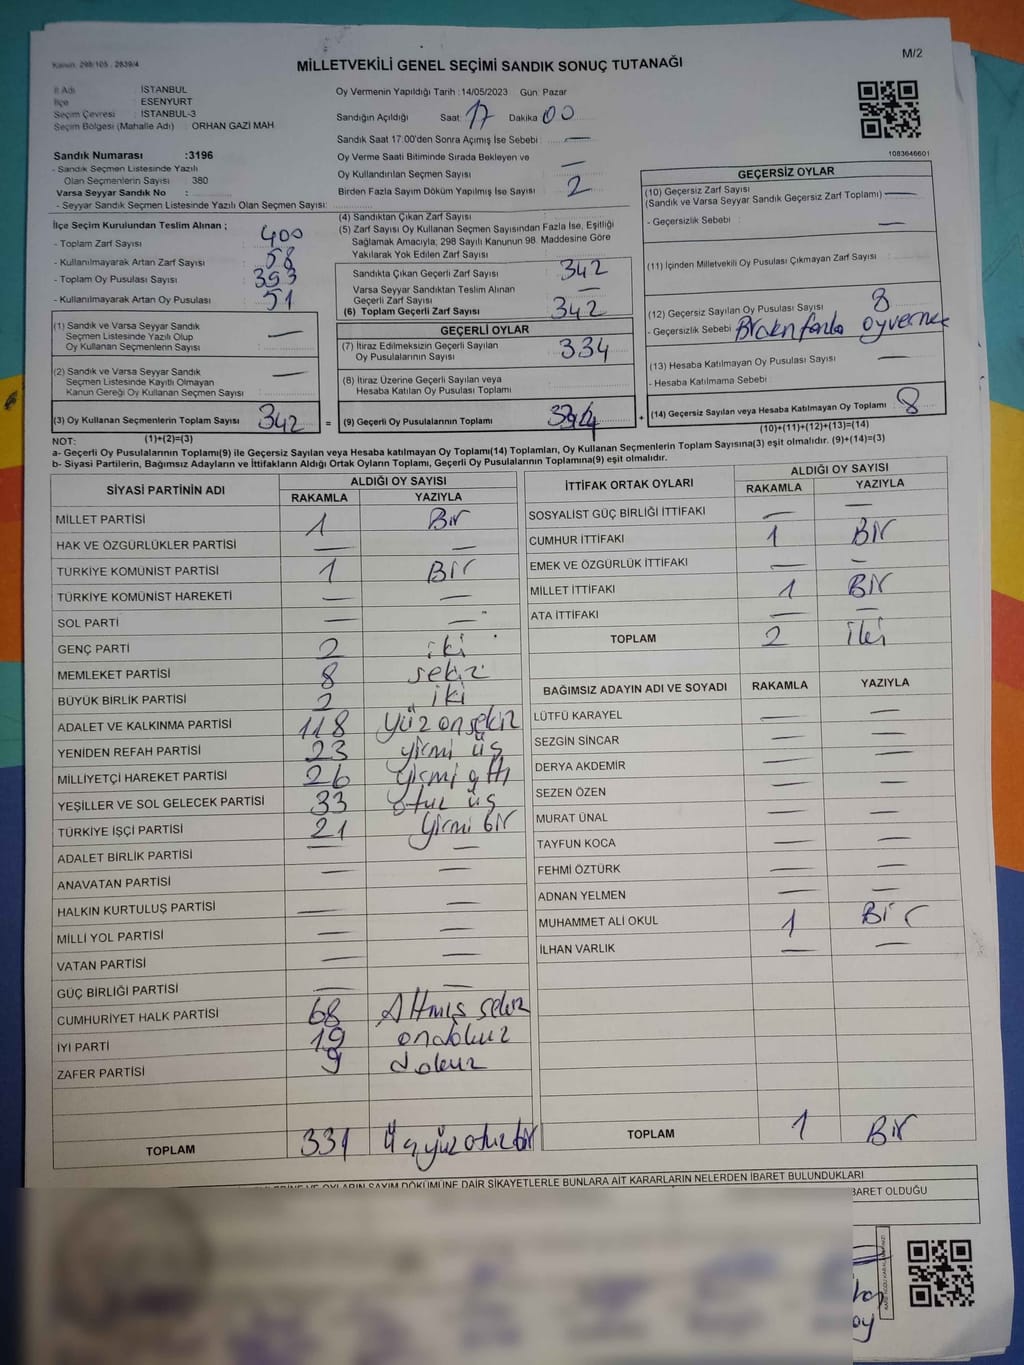 Kanun: 298/105 . 2839/4
M/2
MİLLETVEKİLİ GENEL SEÇİMİ SANDIK SONUÇ TUTANAĞI
İl Adı : İSTANBUL
İlçe : ESENYURT
Seçim Çevresi : İSTANBUL-3
Seçim Bölgesi (Mahalle Adı) : ORHAN GAZİ MAH
Oy Vermenin Yapıldığı Tarih :14/05/2023 Gün: Pazar
Sandığın Açıldığı Saat: 17 Dakika 00
Sandık Saat 17:00'den Sonra Açımış İse Sebebi : —
Oy Verme Saati Bitiminde Sırada Bekleyen ve
Oy Kullandırılan Seçmen Sayısı —
Birden Fazla Sayım Döküm Yapılmış İse Sayısı : 2
1083646601
Sandık Numarası :3196
- Sandık Seçmen Listesinde Yazılı
Olan Seçmenlerin Sayısı : 380
Varsa Seyyar Sandık No :
- Seyyar Sandık Seçmen Listesinde Yazılı Olan Seçmen Sayısı:
İlçe Seçim Kurulundan Teslim Alınan ;
- Toplam Zarf Sayısı : 400
- Kullanılmayarak Artan Zarf Sayısı : 58
- Toplam Oy Pusulası Sayısı : 393
- Kullanılmayarak Artan Oy Pusulası : 51
(1) Sandık ve Varsa Seyyar Sandık
Seçmen Listesinde Yazılı Olup
Oy Kullanan Seçmenlerin Sayısı —
(2) Sandık ve Varsa Seyyar Sandık
Seçmen Listesinde Kayıtlı Olmayan
Kanun Gereği Oy Kullanan Seçmen Sayısı —
(3) Oy Kullanan Seçmenlerin Toplam Sayısı 342
(1)+(2)=(3)
(4) Sandıktan Çıkan Zarf Sayısı :
(5) Zarf Sayısı Oy Kullanan Seçmen Sayısından Fazla İse, Eşitliği
Sağlamak Amacıyla; 298 Sayılı Kanunun 98. Maddesine Göre
Yakılarak Yok Edilen Zarf Sayısı :
Sandıkta Çıkan Geçerli Zarf Sayısı : 342
Varsa Seyyar Sandıktan Teslim Alınan
Geçerli Zarf Sayısı : —
(6) Toplam Geçerli Zarf Sayısı : 342
GEÇERLİ OYLAR
(7) İtiraz Edilmeksizin Geçerli Sayılan
Oy Pusulalarının Sayısı : 334
(8) İtiraz Üzerine Geçerli Sayılan veya
Hesaba Katılan Oy Pusulası Toplamı
= (9) Geçerli Oy Pusulalarının Toplamı
GEÇERSİZ OYLAR
(10) Geçersiz Zarf Sayısı
(Sandık ve Varsa Seyyar Sandık Geçersiz Zarf Toplamı) —
- Geçersizlik Sebebi : —
(11) İçinden Milletvekili Oy Pusulası Çıkmayan Zarf Sayısı :
(12) Geçersiz Sayılan Oy Pusulası Sayısı : 8
- Geçersizlik Sebebi fazla
(13) Hesaba Katılmayan Oy Pusulası Sayısı : —
- Hesaba Katılmama Sebebi :
+ (14) Geçersiz Sayılan veya Hesaba Katılmayan Oy Toplamı 8
(10)+(11)+(12)+(13)=(14)
NOT:
a- Geçerli Oy Pusulalarının Toplamı(9) ile Geçersiz Sayılan veya Hesaba Katılmayan Oy Toplamı(14) Toplamları, Oy Kullanan Seçmenlerin Toplam Sayısına(3) eşit olmalıdır. (9)+(14)=(3)
b- Siyasi Partilerin, Bağımsız Adayların ve İttifakların Aldığı Ortak Oyların Toplamı, Geçerli Oy Pusulalarının Toplamına(9) eşit olmalıdır.
SİYASİ PARTİNİN ADI ALDIĞI OY SAYISI
RAKAMLA YAZIYLA
MİLLET PARTİSİ 1 Bir
HAK VE ÖZGÜRLÜKLER PARTİSİ — —
TÜRKİYE KOMÜNİST PARTİSİ 1 Bir
TÜRKİYE KOMÜNİST HAREKETİ — —
SOL PARTİ — —
GENÇ PARTİ 2 iki
MEMLEKET PARTİSİ 8 sekiz
BÜYÜK BİRLİK PARTİSİ 2 iki
ADALET VE KALKINMA PARTİSİ 118 yüz onsekiz
YENİDEN REFAH PARTİSİ 23 yirmi üç
MİLLİYETÇİ HAREKET PARTİSİ 26 yirmi altı
YEŞİLLER VE SOL GELECEK PARTİSİ 33 otuz üç
TÜRKİYE İŞÇİ PARTİSİ 21 Yirmi bir
ADALET BİRLİK PARTİSİ — —
ANAVATAN PARTİSİ — —
HALKIN KURTULUŞ PARTİSİ — —
MİLLİ YOL PARTİSİ — —
VATAN PARTİSİ — —
GÜÇ BİRLİĞİ PARTİSİ — —
CUMHURİYET HALK PARTİSİ 68 Altmış sekiz
İYİ PARTİ 19 ondokuz
ZAFER PARTİSİ 9 dokuz
TOPLAM 331 Üçyüz otuz bir
İTTİFAK ORTAK OYLARI ALDIĞI OY SAYISI
RAKAMLA YAZIYLA
SOSYALİST GÜÇ BİRLİĞİ İTTİFAKI — —
CUMHUR İTTİFAKI 1 Bir
EMEK VE ÖZGÜRLÜK İTTİFAKI — —
MİLLET İTTİFAKI 1 Bir
ATA İTTİFAKI — —
TOPLAM 2 iki
BAĞIMSIZ ADAYIN ADI VE SOYADI RAKAMLA YAZIYLA
LÜTFÜ KARAYEL — —
SEZGİN SİNCAR — —
DERYA AKDEMİR — —
SEZEN ÖZEN — —
MURAT ÜNAL — —
TAYFUN KOCA — —
FEHMİ ÖZTÜRK — —
ADNAN YELMEN — —
MUHAMMET ALİ OKUL 1 Bir
İLHAN VARLIK — —
TOPLAM 1 Bir
OYLARIN SAYIM DÖKÜMÜNE DAİR ŞİKAYETLERLE BUNLARA AİT KARARLARIN NELERDEN İBARET BULUNDUKLARI
İBARET OLDUĞU